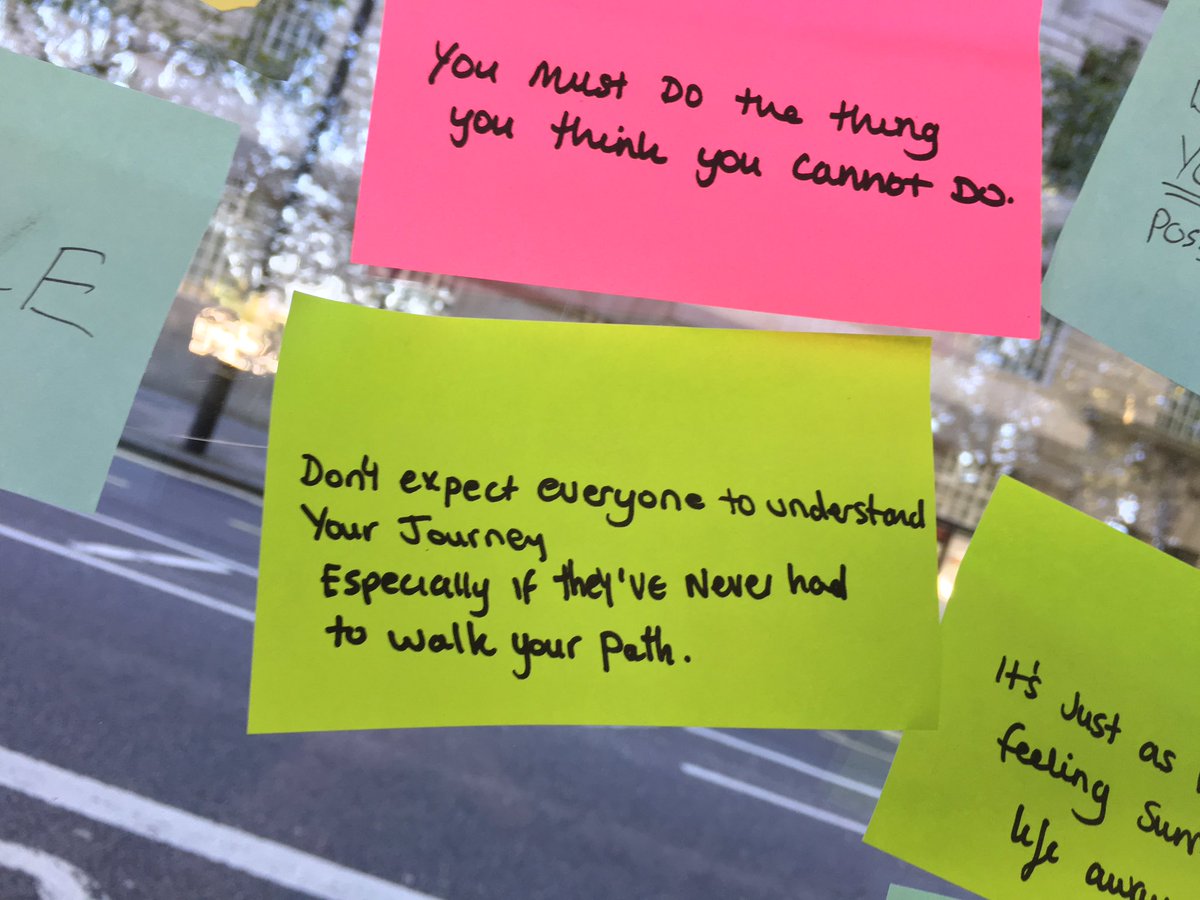 You Must Do the thing
you think you cannot Do.
Don't expect everyone to understand
Your Journey
Especially if they've Never had
to walk your path.
It's Just as
feeling
life